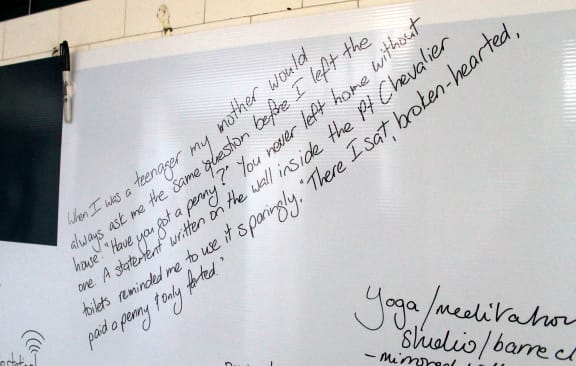 When I was a teenager my mother would
always ask me the same question before I left the
house: "Have you got a penny?" You never left home without
one. A statement written on the wall inside the Pt Chevalier
toilets reminded me to use it sparingly. "There I sat, broken-hearted,
paid a penny & only farted."
Yoga/meditation
studio/barre cl
- mirrored